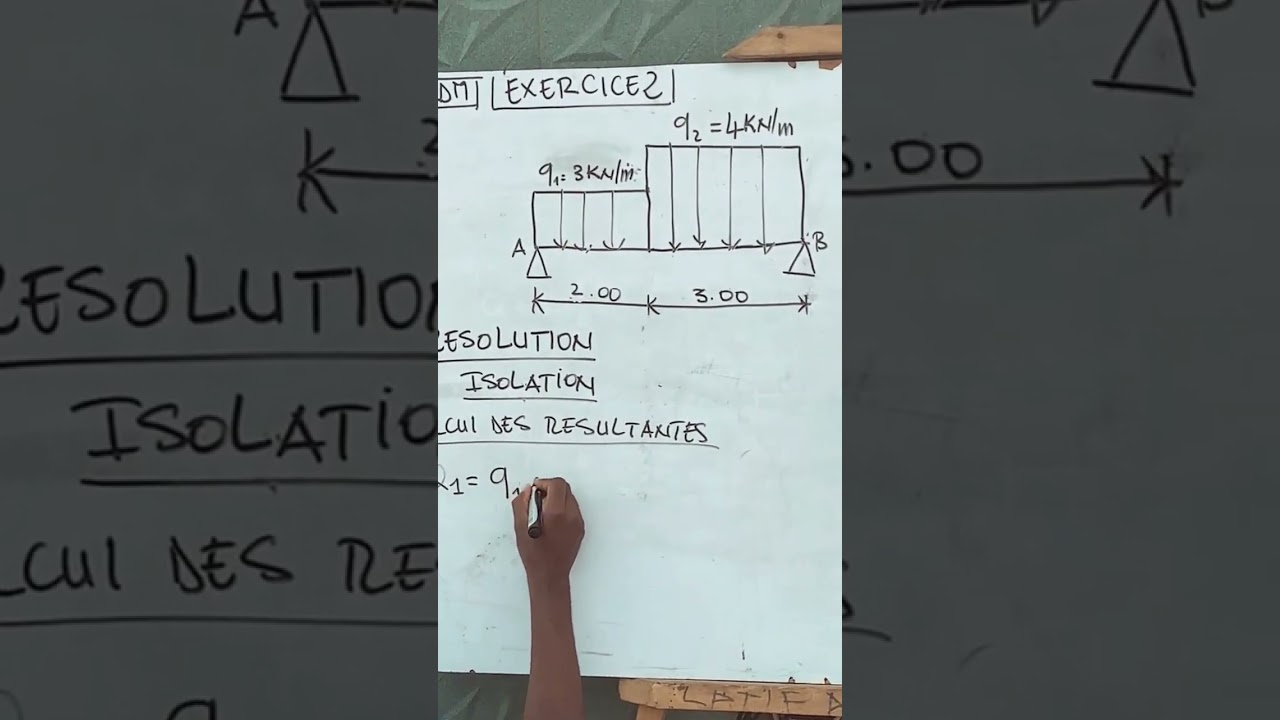 DM EXERCICE 2
q2 = 4KN/m
q1 = 3KN/m
A B
2.00 3.00
ESOLUTION
ISOLATION
LCUL DES RESULTANTES
R1 = q1
LATIF A